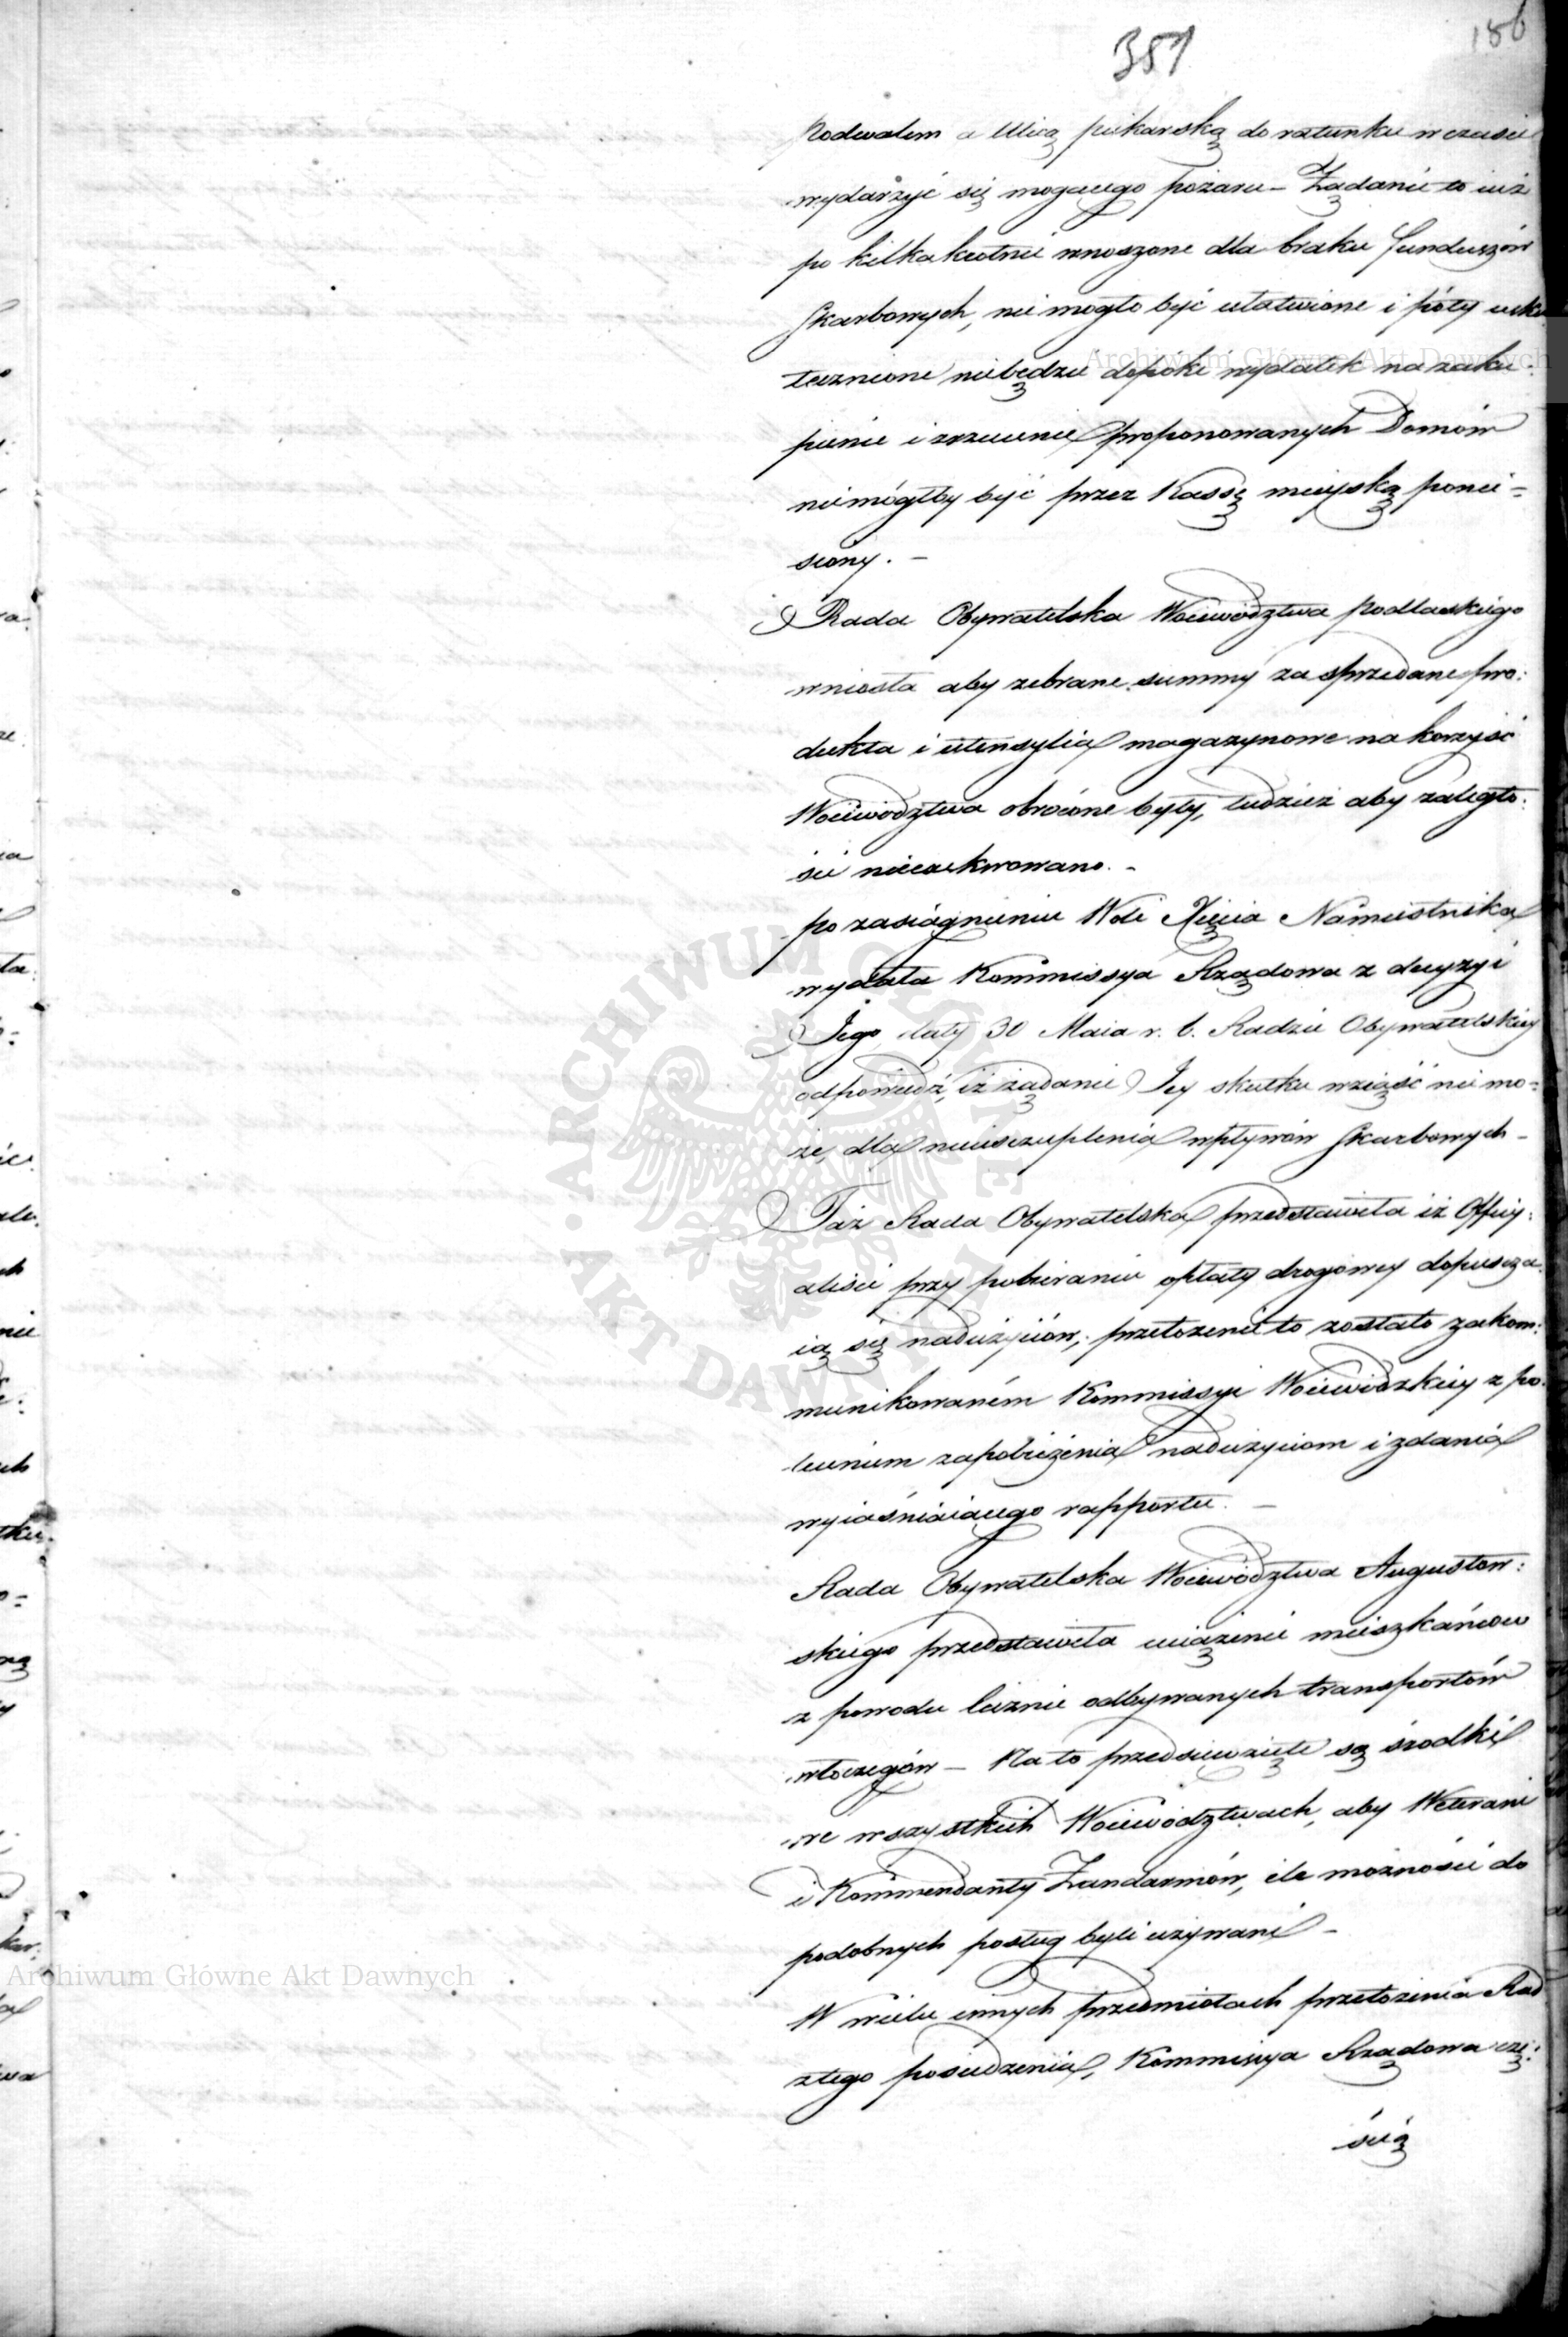 351
186
Podwalem a Ulicą piekarską do ratunku w czasie
wydarzyć się mogącego pożaru – Żądanie to iuż
po kilkakrotnie wnoszone dla braku funduszów
Skarbowych, nie mogło być ułatwione i póty usku
tecznione niebędzie dopóki wydatek na zaku:
pienie i zrzucenie proponowanych Domów
niemógłby być przez Kassę mieyską ponie=
siony. –
Rada Obywatelska Woiewództwa Podlaskiego
wniosła aby zebrane summy za sprzedane pro:
dukta i utensylia magazynowe na korzyść
Woiewództwa obrócone były, tudzież aby zaległo:
ści nieexekwowano. –
po zasiągnieniu Woli Xięcia Namiestnika
wydała Kommissya Rządowa z decyzyi
Jego daty 30 Maia r. b. Radzie Obywatelskiey
odpowiedź, iż żądanie Jey skutku wziąść nie mo=
że, dla nieuszczuplenia wpływów Skarbowych –
Taż Rada Obywatelska przedstawiła iż Officy:
aliści przy pobieraniu opłaty drogowey dopuszcza
ią się nadużyciów, przełożenie to zostało zakom:
munikowaném Kommissyi Woiewódzkiey z po:
leceniem zapobieżenia nadużyciom i zdania
wyiaśniaiącego rapportu. –
Rada Obywatelska Woiewództwa Augustow:
skiego przedstawiła uciążenie mieszkańców
z powodu licznie odbywanych transportów
włóczęgów – Na to przedsięwzięte są środki
we wszystkich Woiewództwach, aby Weterani
i Kommendanty Żandarmów, ile możności do
podobnych posług byli używani –
W wielu innych przedmiotach przełożenia Rad
z tego posiedzenia, Kommissya Rządowa czę:
ścią
Archiwum Główne Akt Dawnych
Archiwum Główne Akt Dawnych
ARCHIWUM GŁÓWNE AKT DAWNYCH